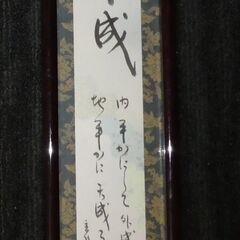 平成
内平かにして外成
地平かに天成る